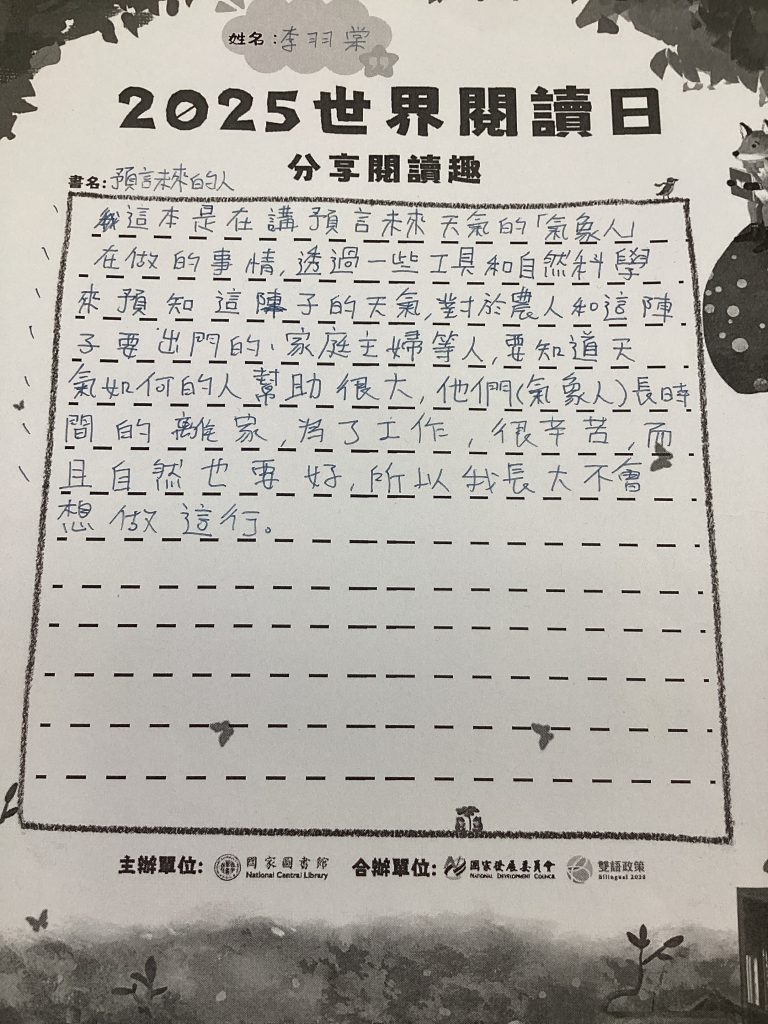 姓名：李羽棠
2025世界閱讀日
分享閱讀趣
書名：預言未來的人
這本是在講預言未來天氣的「氣象人」
在做的事情，透過一些工具和自然科學
來預知這陣子的天氣，對於農人和這陣
子要出門的、家庭主婦等人，要知道天
氣如何的人幫助很大，他們(氣象人)長時
間的離家，為了工作，很辛苦，而
且自然也要好，所以我長大不會
想做這行。
主辦單位：國家圖書館 National Central Library 合辦單位：國家發展委員會 National Development Council 雙語政策 Bilingual 2030